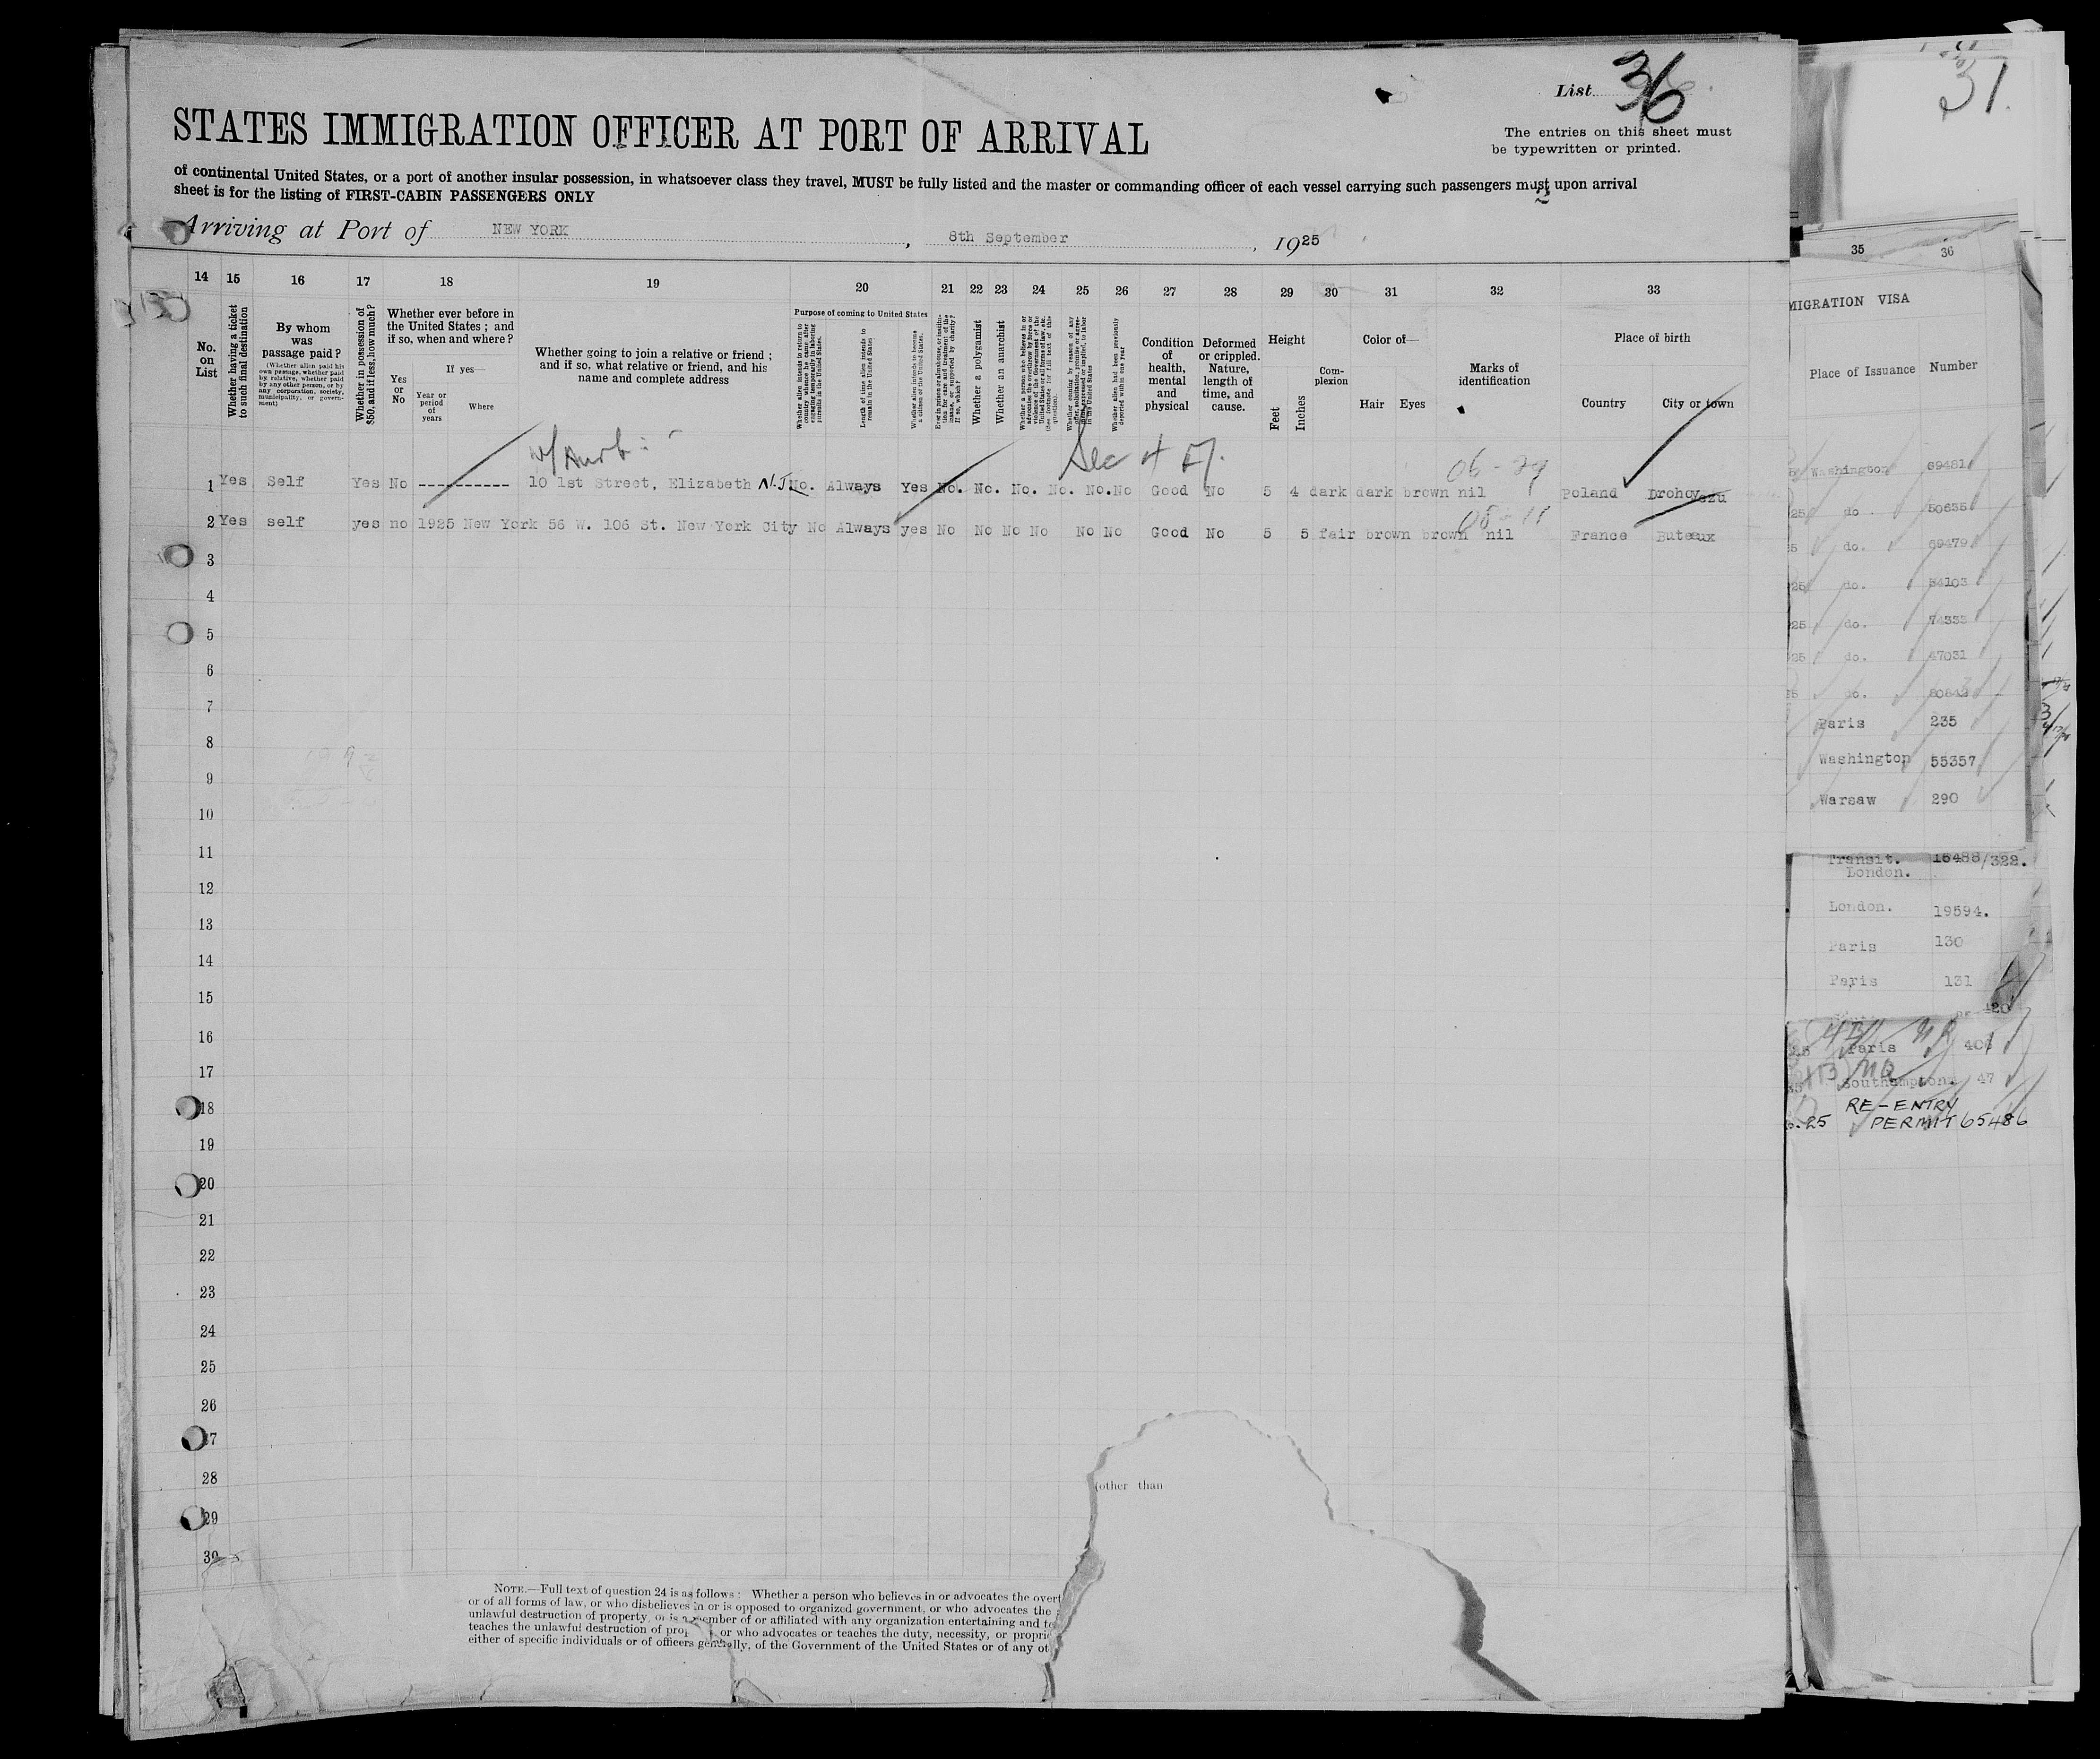 List 36
31.
STATES IMMIGRATION OFFICER AT PORT OF ARRIVAL
The entries on this sheet must
be typewritten or printed.
of continental United States, or a port of another insular possession, in whatsoever class they travel, MUST be fully listed and the master or commanding officer of each vessel carrying such passengers must upon arrival
sheet is for the listing of FIRST-CABIN PASSENGERS ONLY
Arriving at Port of NEW YORK, 8th September, 1925
14 15 16 17 18 19 20 21 22 23 24 25 26 27 28 29 30 31 32 33
No. on List
Whether having a ticket to such final destination
By whom was passage paid?
(Whether alien paid his own passage, whether paid by relative, whether paid by any other person, or by any corporation, society, municipality, or government)
Whether in possession of $50, and if less, how much?
Whether ever before in the United States; and if so, when and where?
Yes or No
If yes—
Year or period of years
Where
Whether going to join a relative or friend; and if so, what relative or friend, and his name and complete address
Purpose of coming to United States
Whether alien intends to return to country whence he came after engaging temporarily in laboring pursuits in the United States.
Length of time alien intends to remain in the United States
Whether alien intends to become a citizen of the United States.
Ever in prison or almshouse, or institution for care and treatment of the insane, or supported by charity? If so, which?
Whether a polygamist
Whether an anarchist
Whether alien had been previously deported within one year
Condition of health, mental and physical
Deformed or crippled. Nature, length of time, and cause.
Height
Feet
Inches
Complexion
Color of—
Hair Eyes
Marks of identification
Place of birth
Country City or town
Sec 4 06-29
1 Yes Self Yes No ----------- 10 1st Street, Elizabeth N.J. No. Always Yes No. No. No. No. No. No Good No 5 4 dark dark brown nil Poland
08-11
2 Yes self yes no 1925 New York 56 W. 106 St. New York City No Always yes No No No No No No Good No 5 5 fair brown brown nil France Buteaux
3
4
5
6
7
8
9
10
11
12
13
14
15
16
17
18
19
20
21
22
23
24
25
26
27
28
29
30
(other than
NOTE.—Full text of question 24 is as follows: Whether a person who believes in or advocates the overt
or of all forms of law, or who disbelieves in or is opposed to organized government, or who advocates the
unlawful destruction of property, or is a member of or affiliated with any organization entertaining and te
teaches the unlawful destruction of prop or who advocates or teaches the duty, necessity, or propri
either of specific individuals or of officers generally, of the Government of the United States or of any ot
35 36
MIGRATION VISA
Place of Issuance Number
Washington 69481
25 do. 50655
do. 69479
25 do. 54103
25 do. 74333
25 do. 47031
do.
Paris 235
Washington 55357
Warsaw 290
Transit. 16488/322.
London.
London. 19594.
Paris 130
Paris 131
Paris 406
Southampton 47
RE-ENTRY
.25 PERMIT 65486